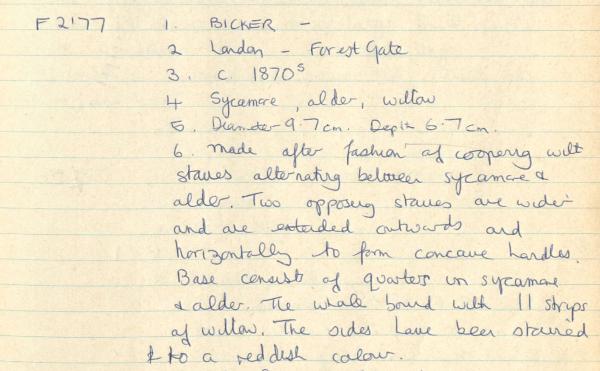 F2177 1. BICKER -
2 London - Forest Gate
3. c. 1870s
4 Sycamore, alder, willow
5. Diameter 9.7cm. Depth 6.7cm.
6. made after fashion of coopering with
staves alternating between sycamore &
alder. Two opposing staves are wider
and are extended outwards and
horizontally to form concave handles.
Base consists of quarters in sycamore
& alder. The whole bound with 11 strips
of willow. The sides have been stained
to a reddish colour.